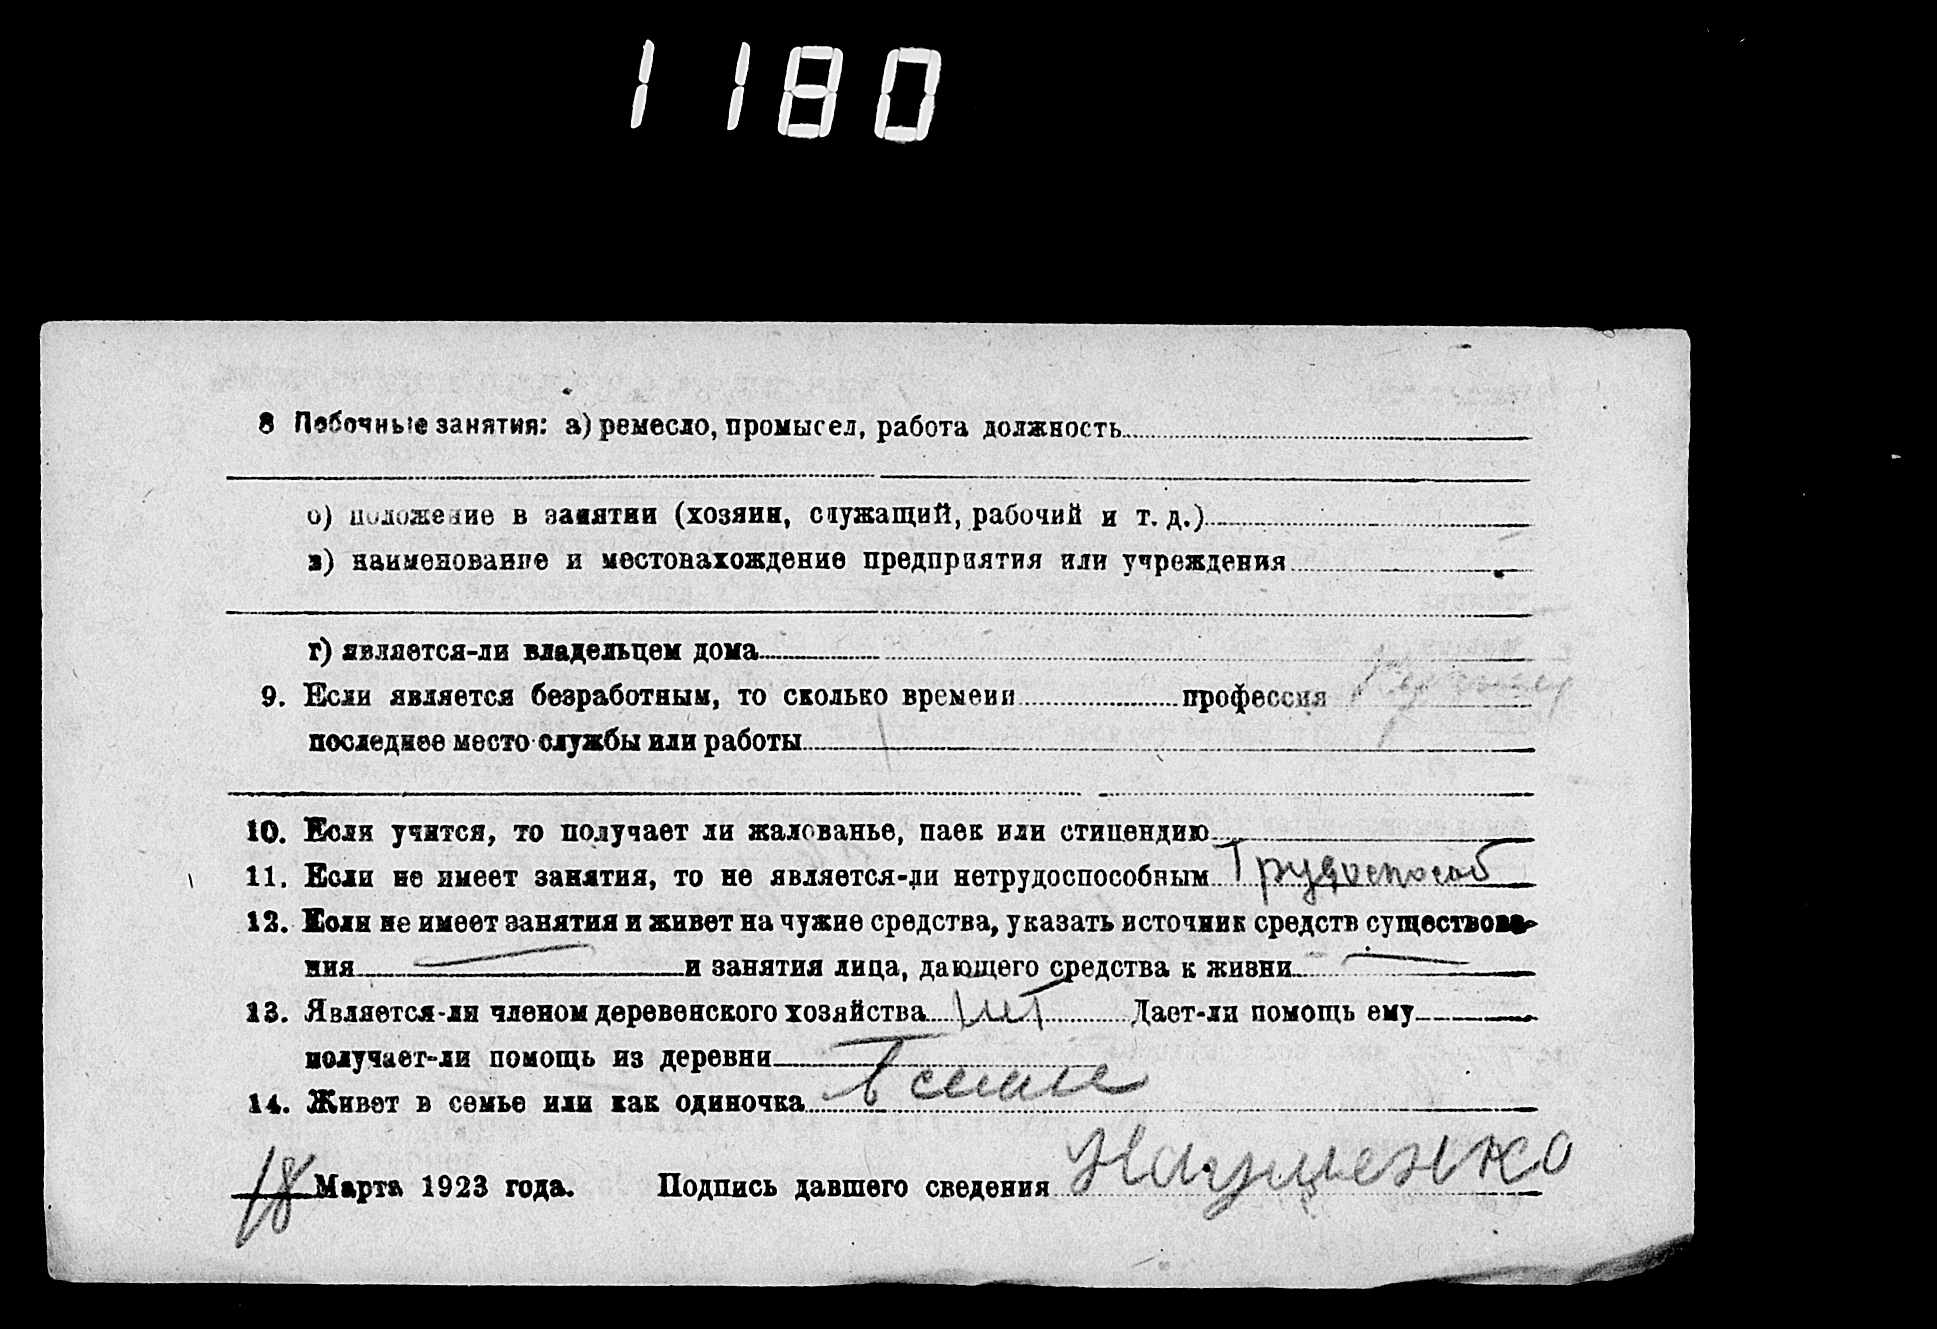 1180
8 Побочные занятия: а) ремесло, промысел, работа должность
б) положение в занятии (хозяин, служащий, рабочий и т. д.)
в) наименование и местонахождение предприятия или учреждения
г) является-ли владельцем дома
9. Если является безработным, то сколько времени профессия
последнее место службы или работы
10. Если учится, то получает ли жалованье, паек или стипендию
11. Если не имеет занятия, то не является-ли нетрудоспособным Трудоспособ
12. Если не имеет занятия и живет на чужие средства, указать источник средств существова-
ния — и занятия лица, дающего средства к жизни —
13. Является-ли членом деревенского хозяйства нет Дает-ли помощь ему
получает-ли помощь из деревни —
14. Живет в семье или как одиночка в семье
18 Марта 1923 года. Подпись давшего сведения